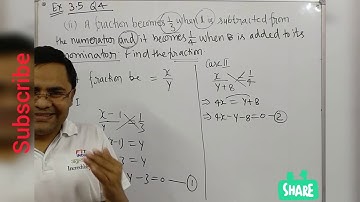 Ex 3.5 Q4
(ii) A fraction becomes 1/3 when 1 is subtracted from
the numerator and it becomes 1/4 when 8 is added to its
denominator. Find the fraction.
fraction be = x/y
I
x-1/y = 1/3
-1) = y
3 = y
y-3=0 — ①
Case II
x/y+8 = 1/4
⇒ 4x = y+8
⇒ 4x-y-8=0 — ②
Subscribe
SHARE